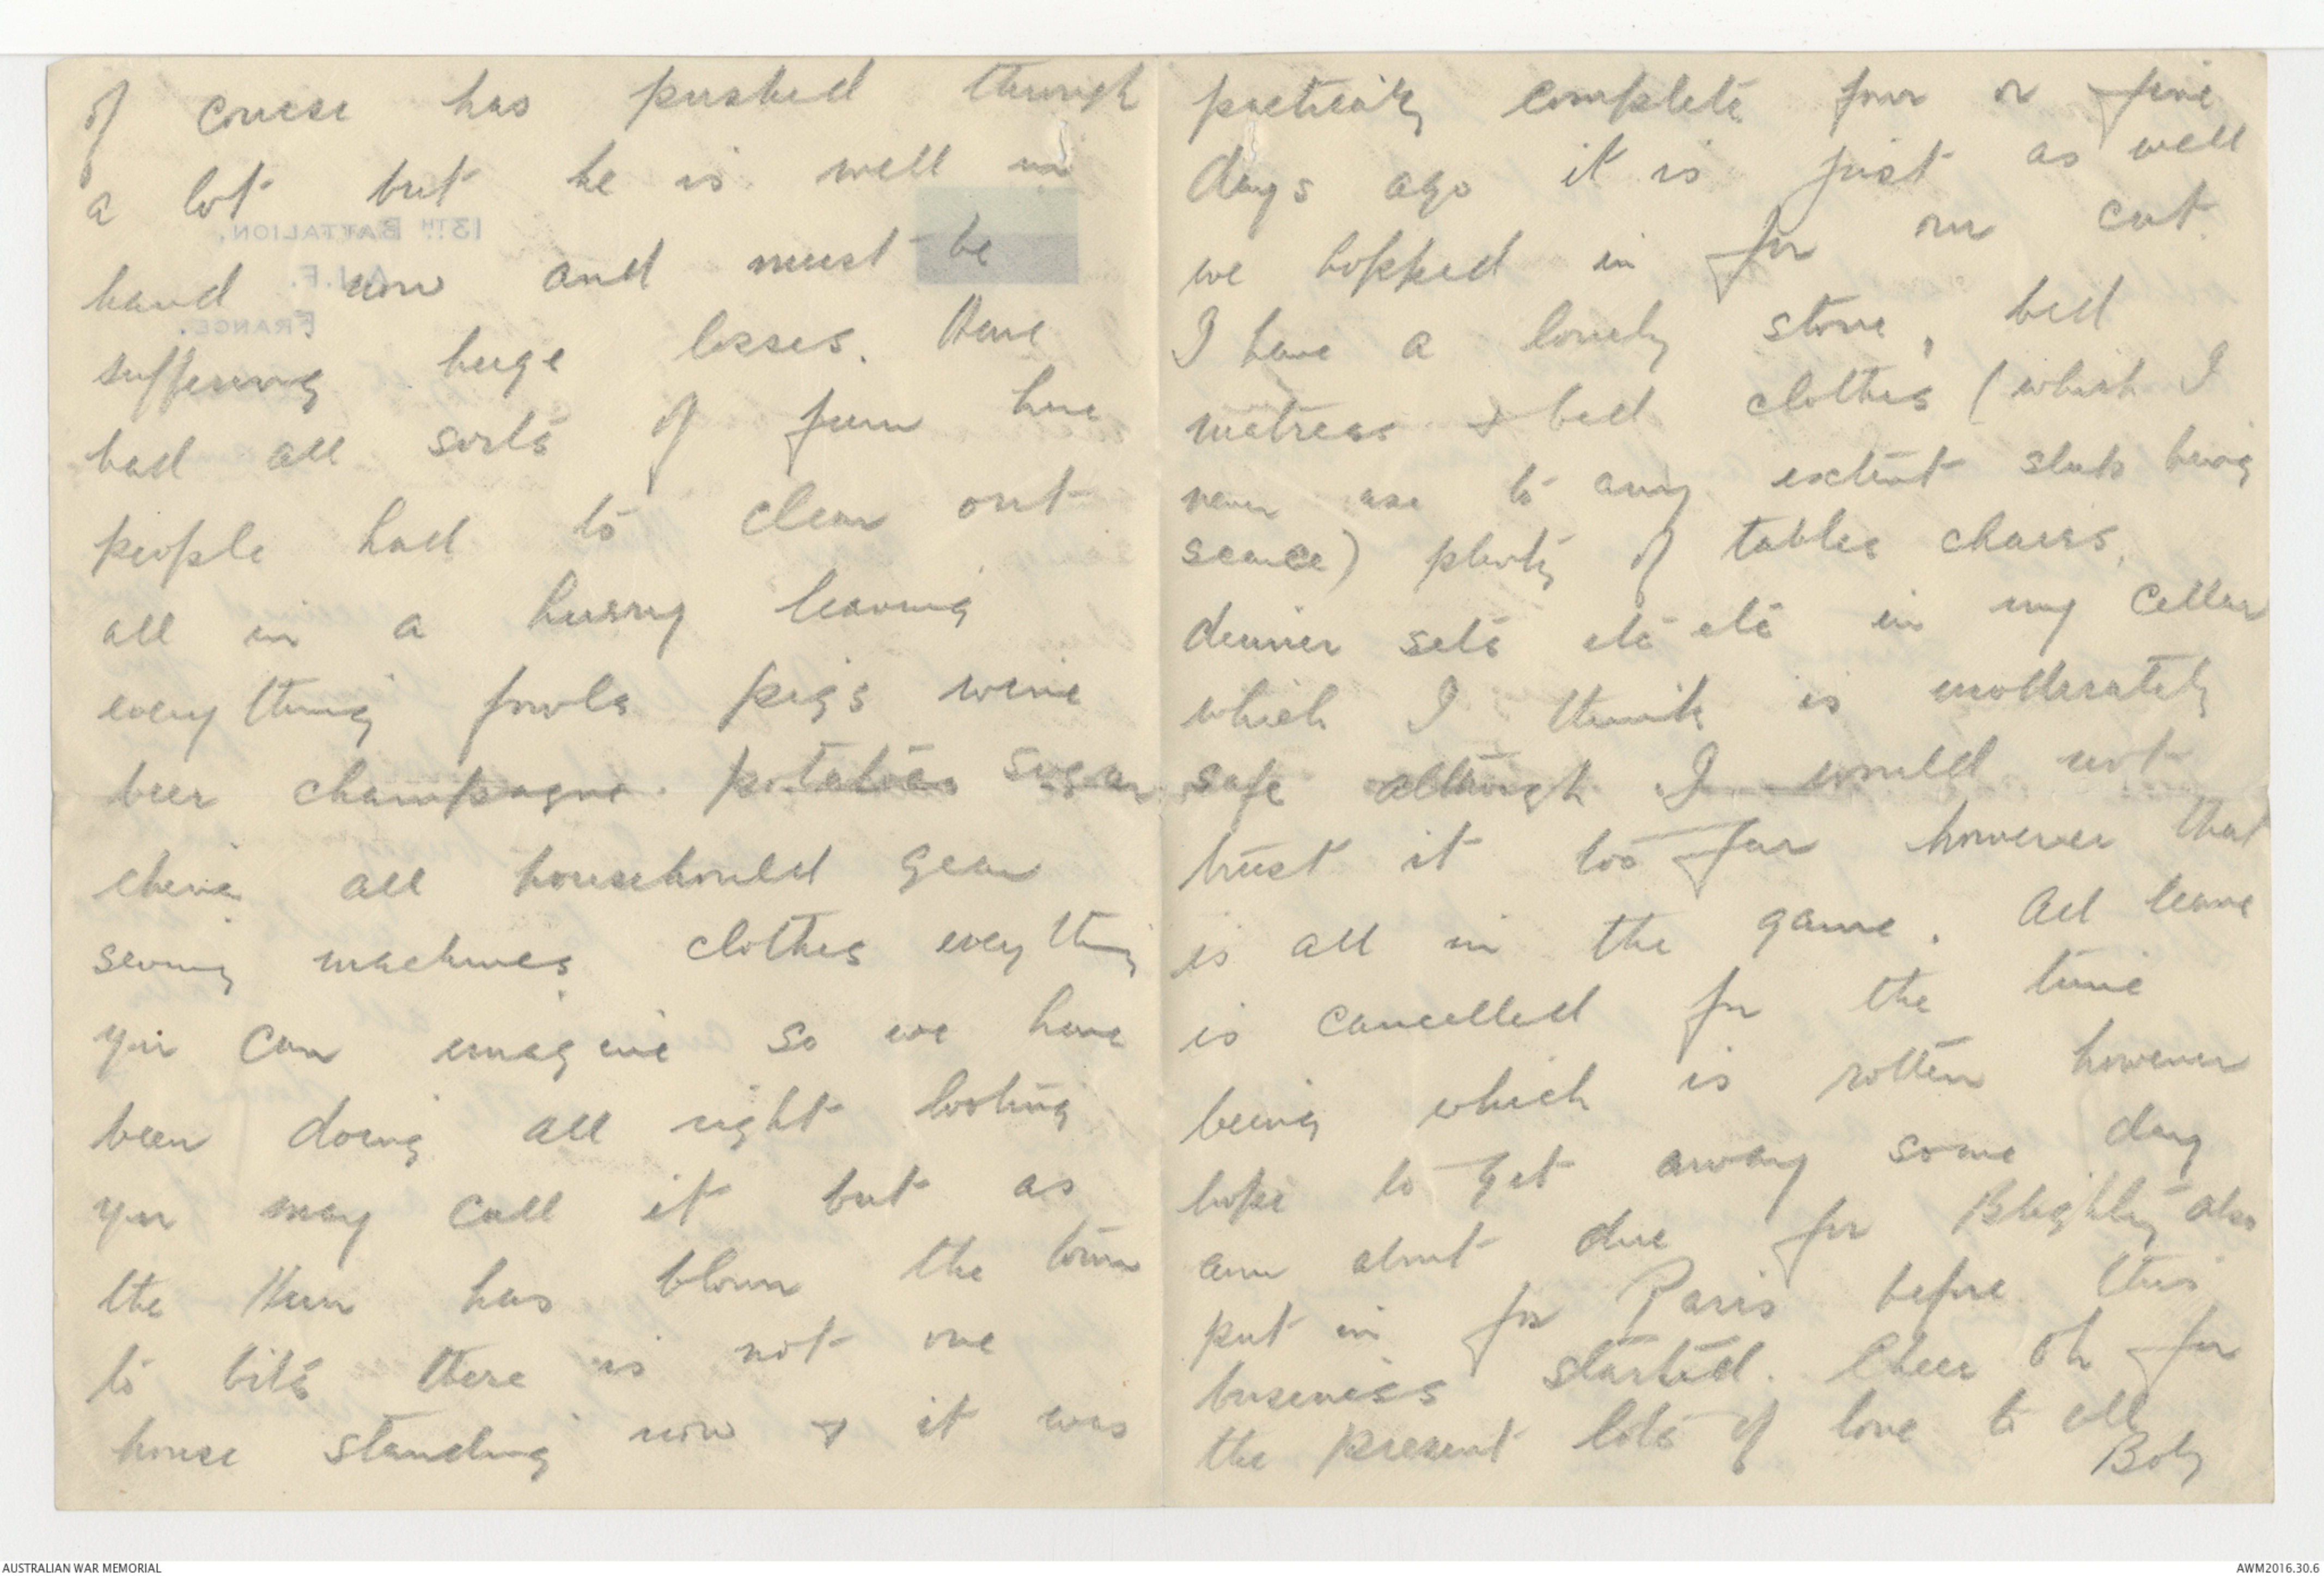 of course has pushed through
a lot but he is well in
hand now and must be
suffering huge losses. Have
had all sorts of fun here
people had to clear out
all in a hurry leaving
every thing fowls pigs wine
beer champagne. potatoes sugar
all househould gear
sewing machines clothes every thing
you can imagine so we have
been doing all right looting
you may call it but as
the Hun has blown the town
to bits there is not one
house standing now & it was
practicaly complete four or five
days ago it is just as well
we hopped in for our cut.
I have a lovely stove, bed
matress & bed clothes (which I
never use to any extent sleep being
scarce) plenty of tables chairs.
dinner sets etc etc in my cellar
which I think is moderately
safe although I would not
trust it too far however that
is all in the game. All leave
is cancelled for the time
being which is rotten however
hope to get away some day
am about due for Blighty also
put in for Paris before this
business started. Cheer oh for
the present lots of love to all
Bob
13TH BATTALION,
A.I.F.
FRANCE.
AUSTRALIAN WAR MEMORIAL
AWM2016.30.6